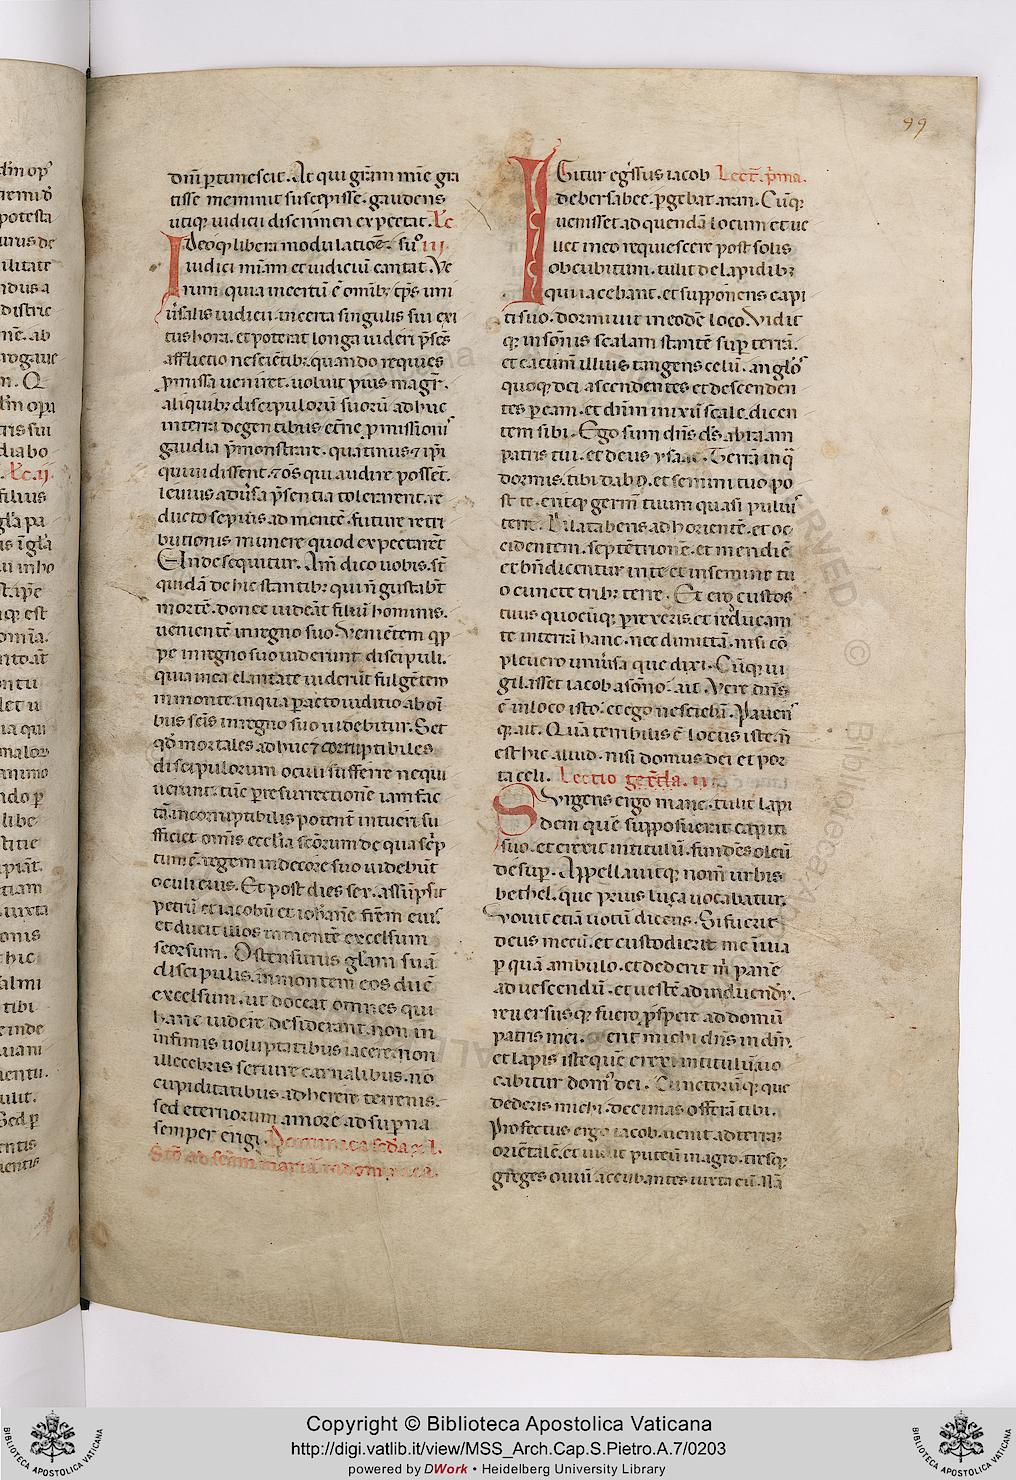 99
dnm̄ ꝑtimescit. At qui gr̄am mīe gra
tisse meminit suscepisse. gaudens
utiqꝫ iudicii discrimen expectat. Lc̄
Ideoqꝫ libera modulatiōe. su⁹ iii
iudici mīam et iudiciū cantat. Ve
rum quia incertū ē omībꝫ tꝑs uni
ūsalis iudicii. incerta singulis sui exi
tus hora. et poterat longa uideri p̄ses
afflictio nesciētibꝫ quando requies
ꝓmissa ueniret. uoluit pius magr̄.
aliquibꝫ discipulorū suorū adhuc
interra degentibus etr̄ne ꝓmissionis
gaudia p̄monstrare. quatinus ⁊ ip̄i
qui uidissent. ⁊ oēs qui audire possēt.
leuius adūsa p̄sentia tolerarent. re
ducto sepius ad mentē. future retri
butionis munere quod expectarēt
Et inde sequitur. Am̄ dico uobis. st̄
quidā de hic stantibꝫ qui ñ gustabt̄
mortē. donec uideāt filiū hominis.
uenientē in regno suo. Venientem qꝑ
pe in regno suo uiderunt discipuli.
quia in ea claritate uiderūt fulgētem
in monte. in qua ꝑacto iuditio ab oī
bus sc̄is in regno suo uidebitur. Set
qd̄ mortales adhuc ⁊ corruptibiles
discipulorum oculi sufferre nequi
uerunt. tūc ꝑ resurrectionē iam fac
tā incorruptibilis potent̄ intueri su
fficiet omīs eccl̄ia sc̄orum de qua sc̄p
tum ē. regem in decore suo uidebūt
oculi eius. Et post dies sex. assūpsit
petrū et iacobū et iohanē fr̄em eius
et ducit illos in montē excelsum
seorsum. Ostensurus gl̄am suā
discipulis. in montem eos ducē
excelsum. ut doceat omnes qui
hanc uidere desiderant. non in
infimis uoluptatibus iacere. non
illecebris seruire carnalibus. nō
cupiditatibus adherere terrenis.
sed eternorum amore ad superna
semper erigi. Dominica scd̄a xl.
Stō ad sc̄am mariā in domnica.
Igitur eg̃ssus iacob Lect̄. p̄ma.
de bersabee. ꝑgebat aran. Cūqꝫ
uenisset ad quendā locum et ue
llet in eo requiescere post solis
occubitum. tulit de lapidibꝫ
qui iacebant. et supponens capi
ti suo. dormiuit in eodē loco. Vidit
qꝫ in sōnis scalam stantē suꝑ terrā.
et cacumē illius tangens celū. anglos
quoqꝫ dei ascendentes et descenden
tes ꝑ eam. et dn̄m inixū scale. dicen
tem sibi. Ego sum dn̄s ds̄ abraam
patris tui. et deus ysaac. Terrā in q̄
dormis. tibi dabo. et semini tuo po
st te. eritqꝫ germē tuum quasi puluis
terre. Dilataberis ad horientē. et oc
cidentem. septētrionē. et meridiē
et bn̄dicentur in te et in semine tu
o cuncte tribꝫ terre. Et ero custos
tuus quocūqꝫ ꝑrexeris. et reducam
te in terrā hanc. nec dimittā. nisi cō
pleuero uniūsa que dixi. Cūqꝫ ui
gilasset iacob a sōno. ait. Vere dn̄s
ē in loco isto. et ego nesciebā. Pauens
qꝫ ait. Quā terribilis ē locus iste. ñ
est hic aliud. nisi domus dei et por
ta celi. Lectio sec̄da. ii
Surgens ergo mane. tulit lapi
dem quē supposuerat capiti
suo. et erexit in titulū. fundēs oleū
desuꝑ. Appellauitqꝫ nom̄ urbis
bethel. que prius luça uocabatur.
vouit etiā uotū dicens. Si fuerit
deus mecū. et custodierit me ī uia
ꝑ quā ambulo. et dederit m̄ panē
ad uescendū. et uestē ad induendū.
reuersusqꝫ fuero p̄spere ad domū
patris mei. erit michi dn̄s in dm̄.
et lapis iste quē erexi in titulū. uo
cabitur domus dei. Cunctorūqꝫ que
dederis michi. decimas offerā tibi.
Profectus ergo iacob. uenit ad terrā
oriētalē. et uidit puteū in agro. tresqꝫ
greges ouiū accubantes iuxta eū. Nā
Copyright © Biblioteca Apostolica Vaticana
http://digi.vatlib.it/view/MSS_Arch.Cap.S.Pietro.A.7/0203
powered by DWork • Heidelberg University Library
BIBLIOTECA APOSTOLICA VATICANA
BIBLIOTECA APOSTOLICA VATICANA